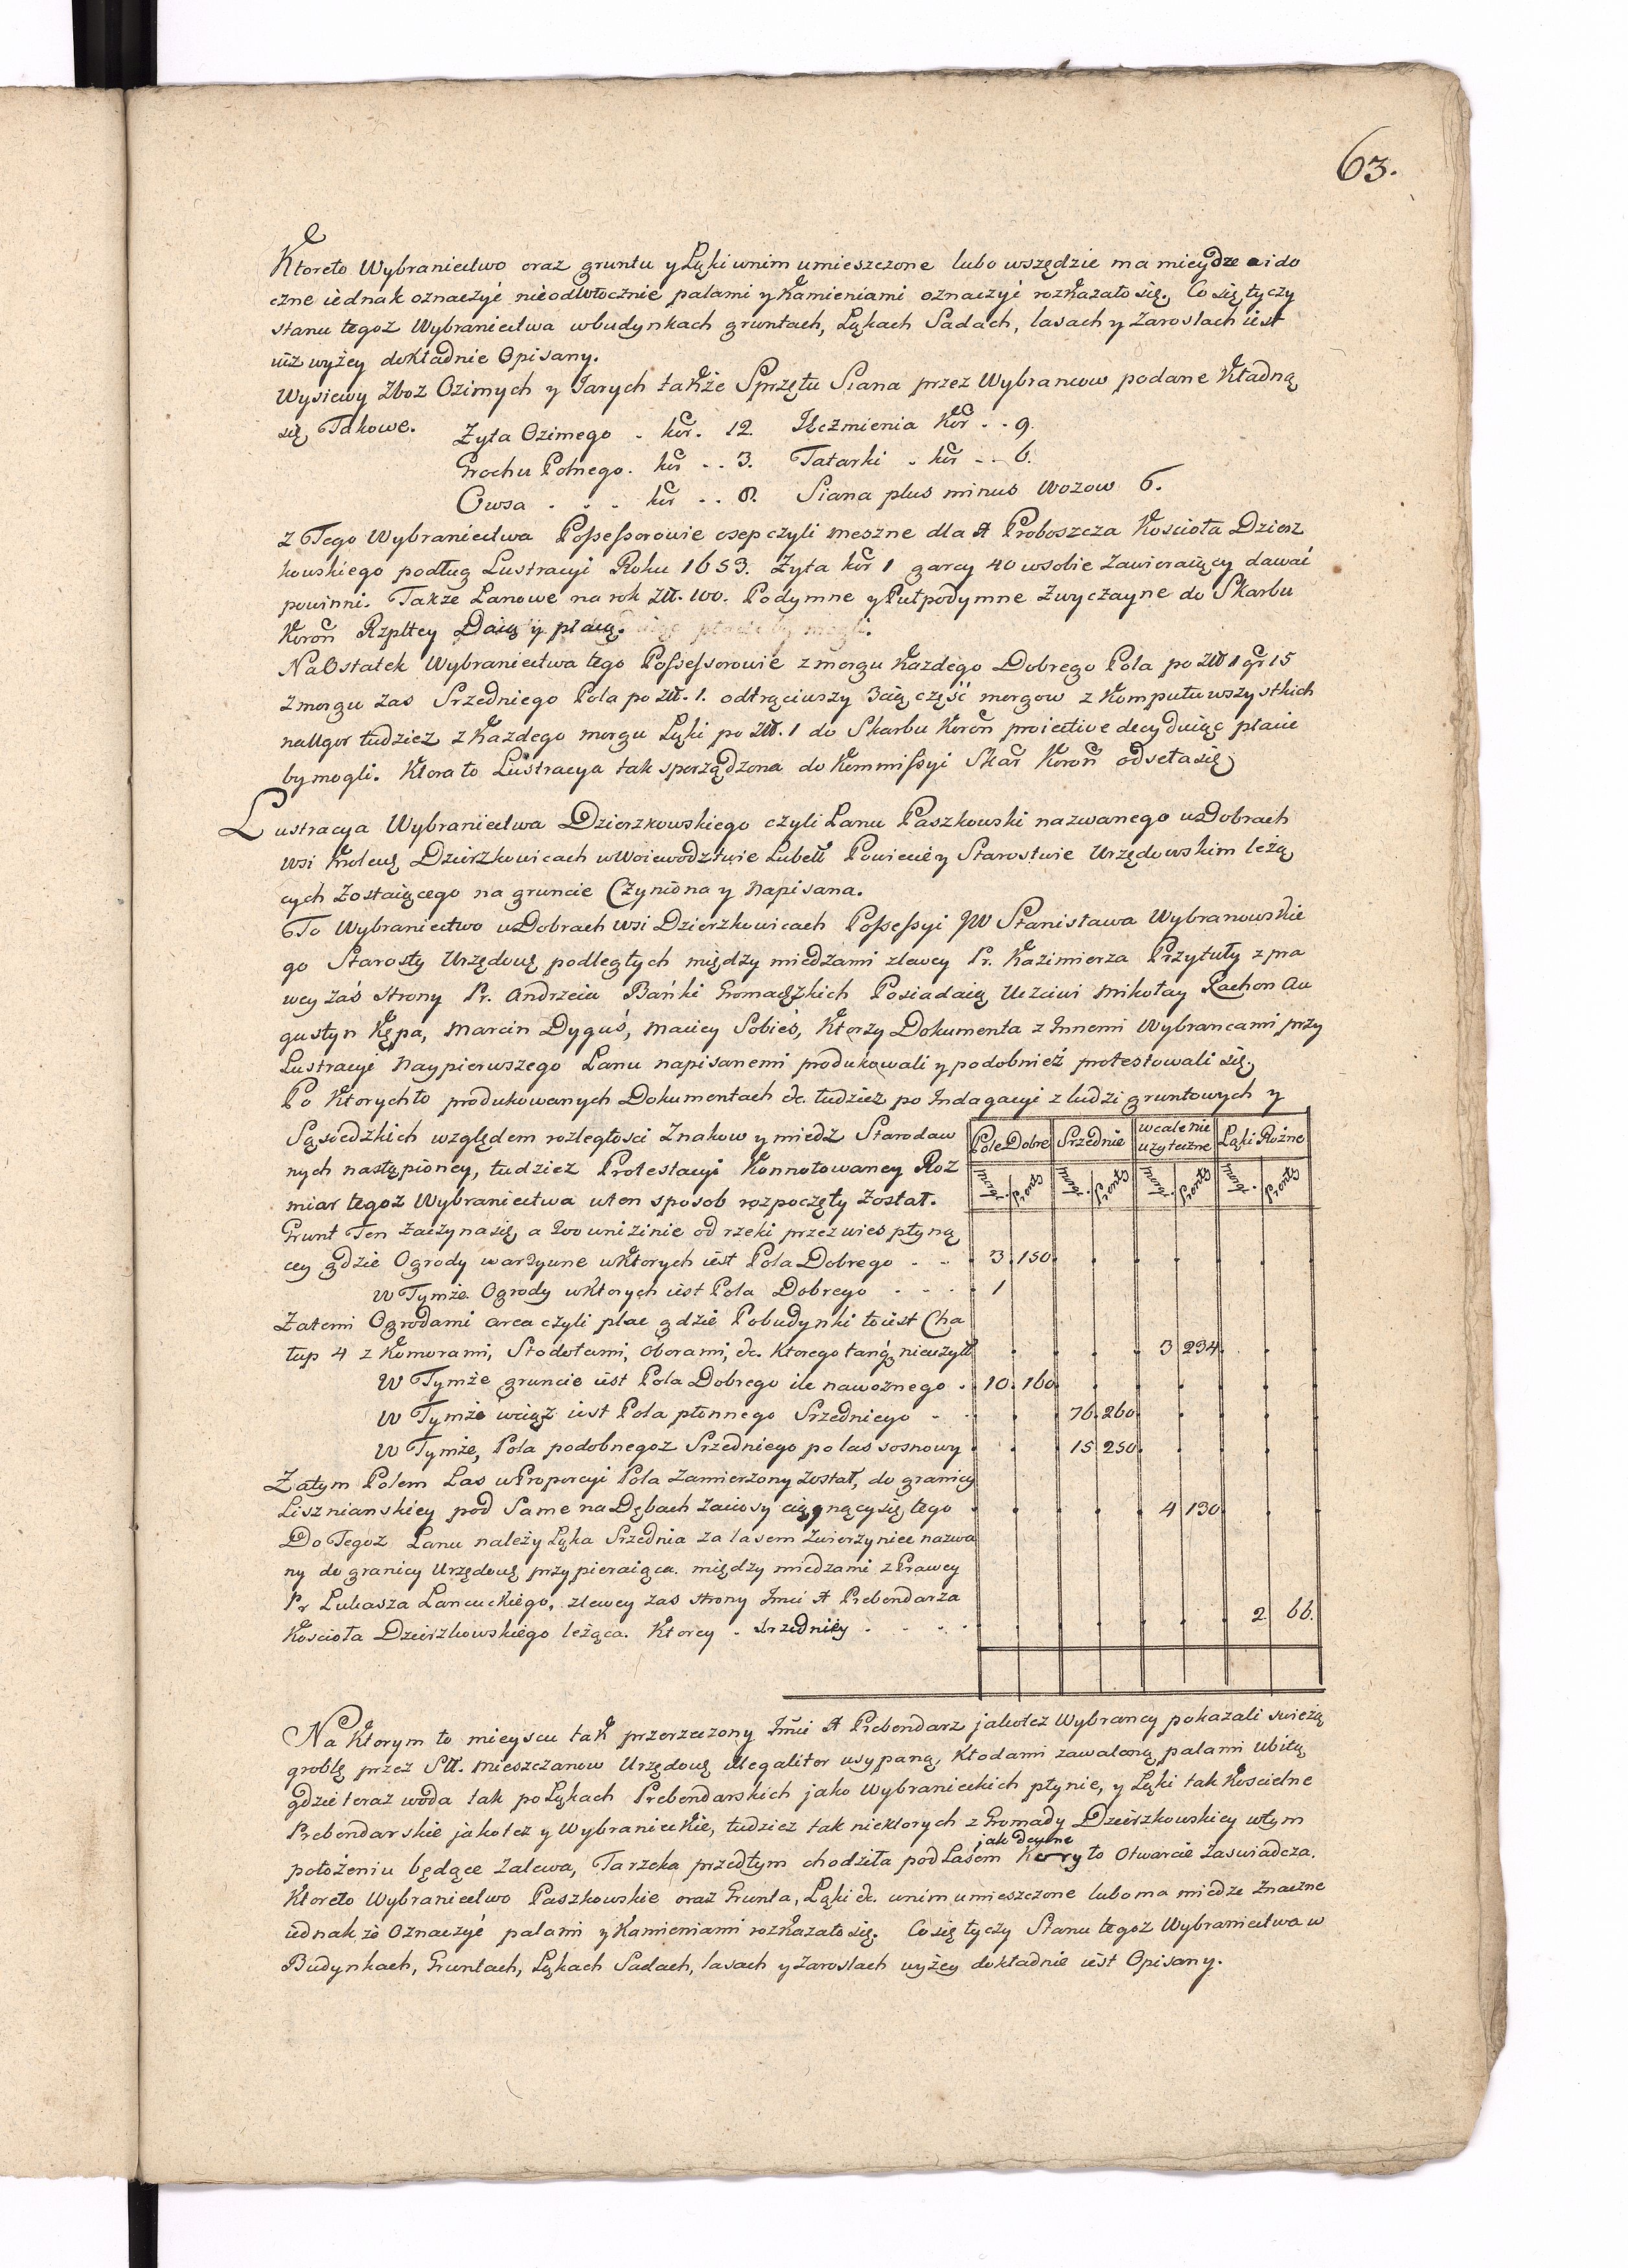 63.
Ktoreto Wybraniectwo oraz gruntu y Łąki w nim umieszczone lubo wszędzie ma miedze wido
czne iednak oznaczyć nieodwłocznie palami y Kamieniami oznaczyć rozkazało się. Co się tyczy
stanu tegoż Wybraniectwa w budynkach gruntach, Łąkach Sadach, lasach y Zaroslach iest
iuż wyżey dokładnie Opisany.
Wysiewy Zboz Ozimych y Jarych także Sprzętu Siana przez Wybrancow podane Kładną
się Takowe. Zyta Ozimego . kor. 12. Jęczmienia Kor . . 9.
Grochu Polnego . kor . . 3. Tatarki . kor . . 6.
Owsa . . . kor . . 8. Siana plus minus Wozow 6.
Z Tego Wybraniectwa Possessorowie osep czyli meszne dla X Proboszcza Koscioła Dzierz
kowskiego podług Lustracyi Roku 1653. Zyta kor 1 garcy 40 w sobie Zawieraiący dawać
powinni. Także Łanowe na rok Złł. 100. Podymne y Pułpodymne Zwyczayne do Skarbu
Koron Rzpltey Daią y płacą.
Na Ostatek Wybraniectwa tego Possessorowie z morgu Każdego Dobrego Pola po Złł 1 gr 15
z morgu zas Srzedniego Pola po Złł. 1. odtrąciwszy 3cią część morgow z Komputu wszystkich
na Ugor tudziez z Każdego morgu Łąki po Złł. 1 do Skarbu Koron proiective decyduiąc płacie
by mogli. Ktora to Lustracya tak sporządzona do Kommissyi Skar Koron odseła się
Lustracya Wybraniectwa Dzierzkowskiego czyli Łanu Paszkowski nazwanego w Dobrach
wsi Krolews Dzierzkowicach w Woiewodztwie Lubell Powiecie y Starostwie Urzędowskim leżą
cych Zostaiącego na gruncie Czyniona y Napisana.
To Wybraniectwo w Dobrach wsi Dzierzkowicach Possessyi JW Stanisława Wybranowskie
go Starosty Urzędows podległych między miedzami z lewey Pr. Kazimierza Przytuły z pra
wey zaś strony Pr. Andrzeia Bańki Gromadzkich Posiadaią Uczciwi Mikołay Rachon Au
gustyn Kępa, Marcin Dyguś, Maciey Sobieś, Ktorzy Dokumenta z Innemi Wybrancami przy
Lustracyi Naypierwszego Łanu napisanemi produkowali y podobnież protestowali się
Po Ktorychto produkowanych Dokumentach &c. tudziez po Indagacyi z ludzi gruntowych y
Sąsiedzkich względem rozległosci Znakow y miedz Starodaw
nych nastąpioney, tudziez Protestacyi Konnotowaney Roz
miar tegoż Wybraniectwa w ten sposob rozpoczęty został.
Pole Dobre Srzednie wcale nie użyteczne Łąki Rożne
morgi. Pręnty morgi. Pręnty morgi. Pręnty morgi. Pręnty
Grunt Ten Zaczyna się a 200 w nizinie od rzeki przez wies płyną
cey gdzie Ogrody warzywne w Ktorych iest Pola Dobrego . . . 3 150
w Tymże Ogrody w Ktorych iest Pola Dobrego . . . . 1
Zatemi Ogrodami area czyli plac gdzie Pobudynki to iest Cha
łup 4 z Komorami, Stodołami, Oborami, &c. Ktorego nieużyt 3 234
W Tymże gruncie iest Pola Dobrego ile nawoznego . 10 160
W Tymże wciąż iest Pola płonnego Srzedniego . . 76 260
W Tymże, Pola podobnegoz Srzedniego po las sosnowy 15 250
Zatym Polem Las w Proporcyi Pola Zamierzony został, do granicy
Liszniańskiey pod Same na Dębach Zaciosy ciągnący się tego 4 130
Do Tegoz Łanu należy Łąka Srzednia za lasem Zwierzyniec nazwa
ny do granicy Urzędows przypieraiąca. między miedzami z Prawey
Pr Łukasza Łancuckiego, z lewey zas strony Jmci X Prebendarza
Koscioła Dzierzkowskiego leżąca. Ktorey . srzedniey . . . . 2 66.
Na Ktorym to mieyscu tak przerzeczony Jmci X Prebendarz jakotez Wybrancy pokazali swieżą
groblę przez Sll. Mieszczanow Urzędows illegaliter usypaną, Kłodami zawaloną palami Ubitą
gdzie teraz woda tak po Łąkach Prebendarskich jako Wybranieckich płynie, y Łąki tak Koscielne
Prebendarskie jakotez y Wybranieckie, tudziez tak niektorych z Gromady Dzierzkowskiey w tym
położeniu będące Zalewa, Ta rzeka przedtym chodziła pod Lasem jak dawne Koryto Otwarcie Zaswiadcza.
Ktoreto Wybraniectwo Paszkowskie oraz Grunta, Łąki &c. w nim umieszczone lubo ma miedze Znaczne
iednak że Oznaczyć palami y Kamieniami rozkazało się. Co się tyczy Stanu tegoz Wybraniectwa w
Budynkach, Gruntach, Łąkach Sadach, lasach y Zaroslach wyżey dokładnie iest Opisany.